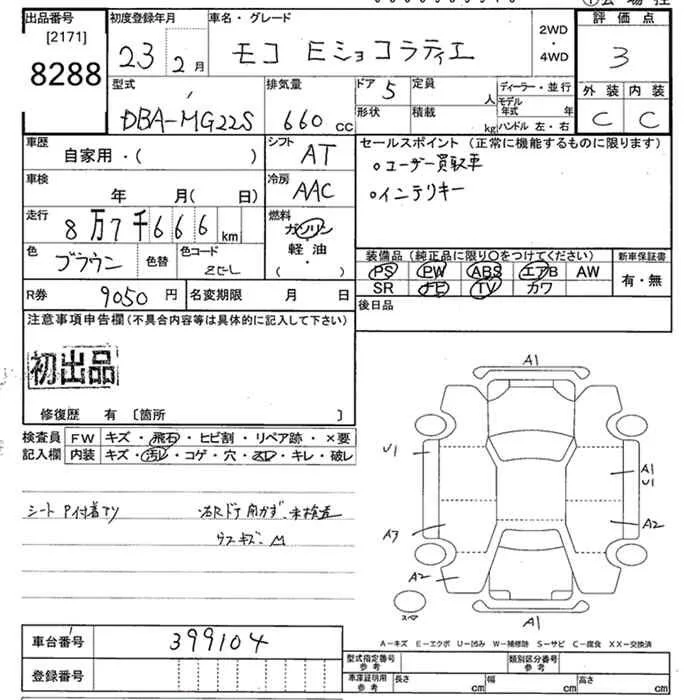 出品番号 初度登録年月 車名・グレード 2WD・4WD 評価点
[2171]
8288 23 2月 モコ Eショコラティエ 3
型式 排気量 ドア 5 定員 人 ディーラー・並行 外装 内装
DBA-MG22S 660 cc 形状 積載 kg モデル年式 年 ハンドル 左・右 C C
車歴 シフト セールスポイント (正常に機能するものに限ります)
自家用・( ) AT ○ユーザー買取車
車検 冷房 ○インテリキー
年 月( 日) AAC
走行 燃料
8万7千666km ガソリン
色 色替 色コード 軽油 装備品 (純正品に限り○をつけてください) 新車保証書
ブラウン ZCL ・( ) PS PW ABS エアB AW 有・無
R券 9050円 名変期限 月 日 SR ナビ TV カワ
注意事項申告欄(不具合内容等は具体的に記入して下さい) 後日品
初出品
修復歴 有 〔箇所 〕
検査員 FW キズ・飛石・ヒビ割・リペア跡・×要
記入欄 内装 キズ・汚レ・コゲ・穴・スレ・キレ・破レ
シート P付着アリ 右Rドア 未検査
ウスキズ M
A1
U1 A1
U1
A3 A2
A2
スペア A1
A-キズ E-エクボ U-凹み W-補修跡 S-サビ C-腐食 XX-交換済
車台番号 399104
登録番号
型式指定番号 参考 類別区分番号 参考
車庫証明用 参考 長さ cm 幅 cm 高さ cm